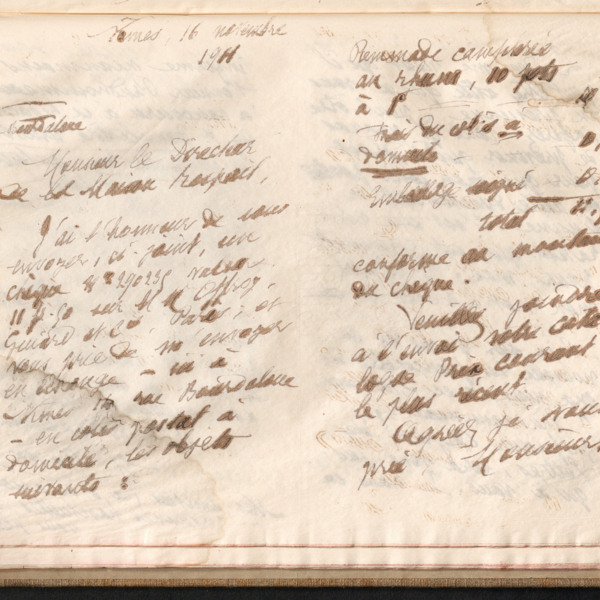 Nîmes, 16 novembre
1911
Bourdaloue
Monsieur le Directeur
de la Maison Raspail,
J'ai l'honneur de vous
envoyer, ci-joint, un
chèque N° 290235
11 f. 50 sur M
et Cie, Paris, et
vous prie de m'envoyer
en échange – ici à
Nîmes rue Bourdaloue
– en colis postal à
domicile, les objets
suivants :
Pommade camphrée
au rhum, 10 pots
à 1f
Frais du colis à
domicile
Emballage soigné
total 11,
conforme au montant
du chèque.
Veuillez joindre
à l'envoi votre cata
logue Prix courant
le plus récent.
Agréez, je vous
prie Monsieur,